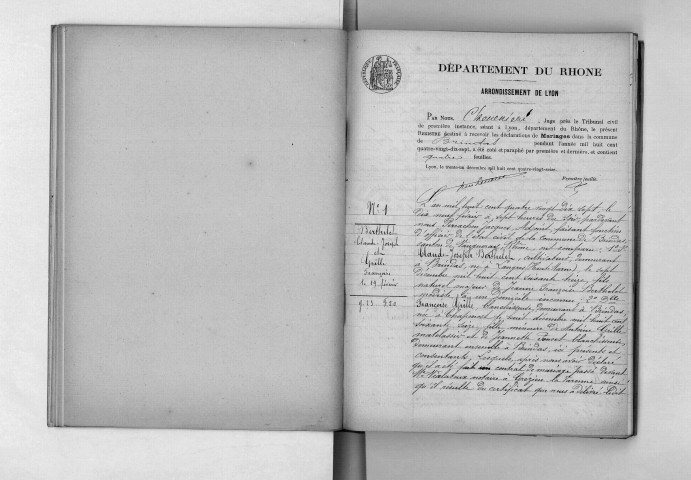 DÉPARTEMENT DU RHONE
ARRONDISSEMENT DE LYON
PAR NOUS, Juge près le Tribunal civil
de première instance, séant à Lyon, département du Rhône, le présent
REGISTRE destiné à recevoir les déclarations de Mariages dans la commune
de Brindas pendant l'année mil huit cent
quatre-vingt-dix-sept, a été coté et paraphé par première et dernière, et contient
feuilles.
Lyon, le trente-un décembre mil huit cent quatre-vingt-seize.
Première feuille
N° 1
Berthelet
Claude Joseph
et
Grille
Françoise
le 19 février
L'an mil huit cent quatre vingt dix sept le
dix neuf février à sept heures du soir, pardevant
nous Jacques faisant fonctions
d'officier de l'état civil de la commune de Brindas,
canton de Vaugneray, Rhône, ont comparu : 1°
Claude-Joseph Berthelet, cultivateur, demeurant
à Brindas, né à Langres (Haute Marne), le sept
décembre mil huit cent soixante treize, fils
naturel majeur de Jeanne Françoise Berthelet
modiste, domicile inconnu ; 2°
Françoise Grille, blanchisseuse demeurant à Brindas
née à le huit décembre mil huit cent
soixante seize, fille mineure de Antoine Grille
matelassier et de Jeannette blanchisseuse,
demeurant ensemble à Brindas, ici présents et
consentants, lesquels, après nous avoir déclaré
qu'il a été fait un contrat de mariage passé devant
Me notaire à Grézieu la Varenne ainsi
qu'il résulte du certificat que nous a délivré ledit